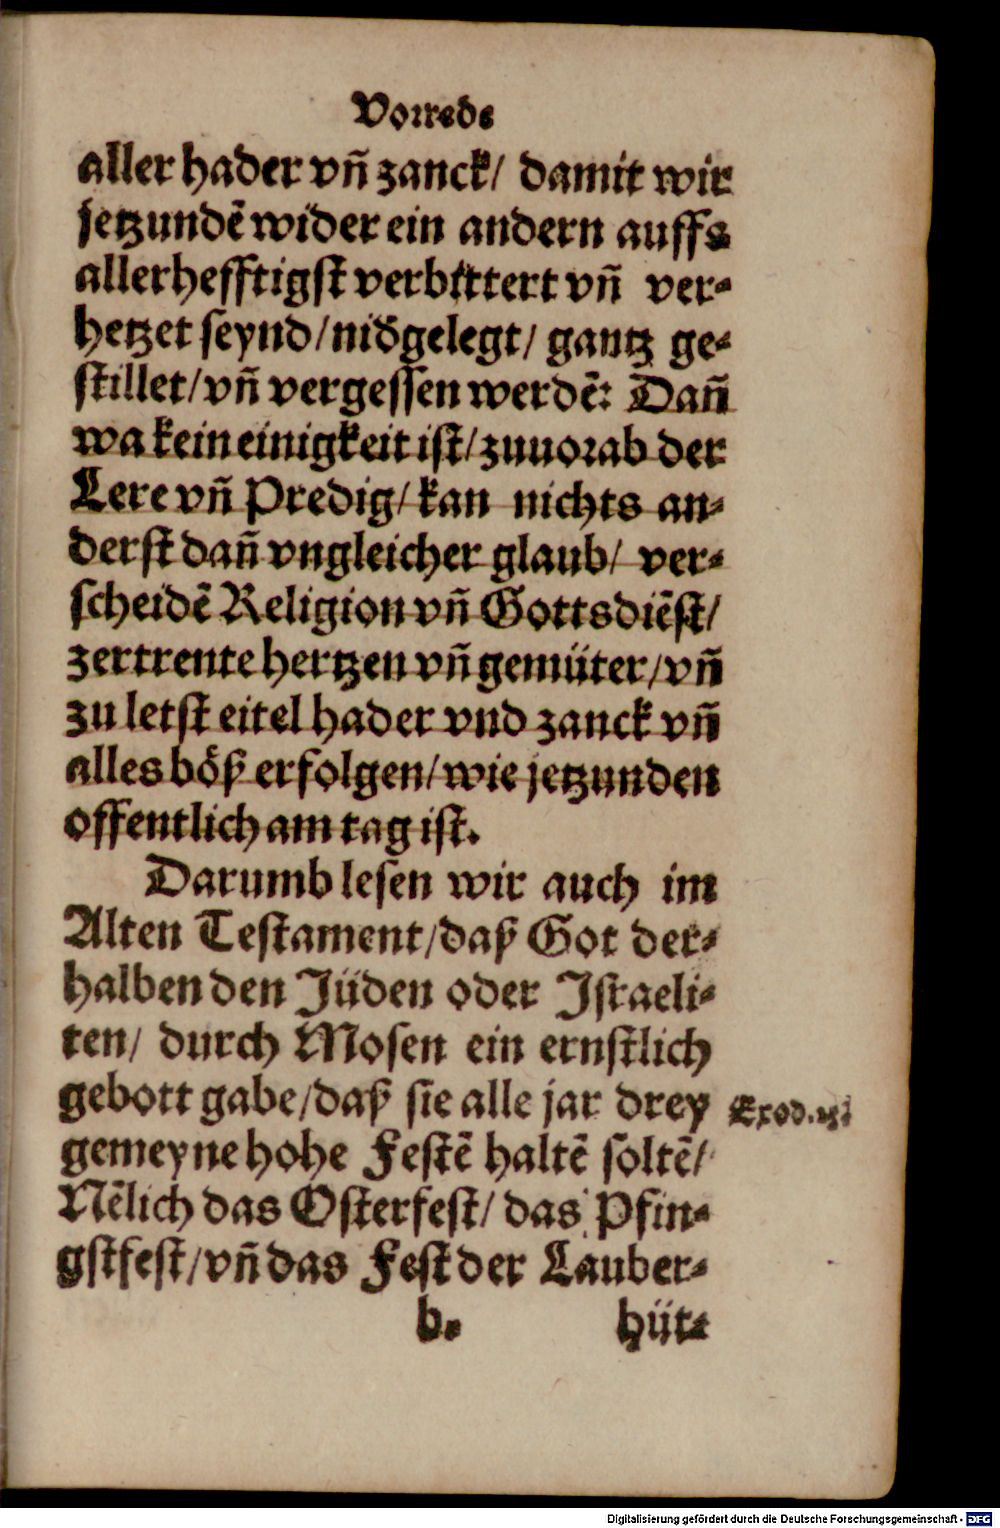 Vorrede
aller hader vñ zanck/ damit wir
jetzundẽ wider ein andern auffs
allerhefftigst verbittert vñ ver⸗
hetzet seynd/nidgelegt/ gantz ge⸗
stillet/vñ vergessen werdẽ: Dañ
wa kein einigkeit ist/zuuorab der
Lere vñ Predig/kan nichts an⸗
derst dañ vngleicher glaub/ ver⸗
scheidẽ Religion vñ Gottsdiẽst/
zertrente hertzen vñ gemüter/vñ
zu letst eitel hader vnd zanck vñ
alles böß erfolgen/wie jetzunden
offentlich am tag ist.
Darumb lesen wir auch im
Alten Testament/daß Got der⸗
halben den Jüden oder Israeli⸗
ten/ durch Mosen ein ernstlich
gebott gabe/daß sie alle jar drey
Exod.
gemeyne hohe Festẽ haltẽ soltẽ/
Nẽlich das Osterfest/ das Pfin⸗
gstfest/vñ das Fest der Lauber⸗
b⸗ hüt⸗
Digitalisierung gefördert durch die Deutsche Forschungsgemeinschaft - DFG